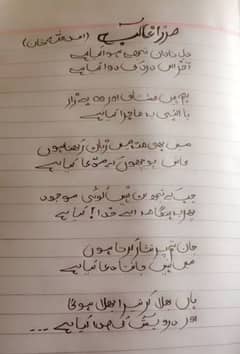 مرزا غالب (اسد اللہ خان)
دل ناداں تجھے ہوا کیا ہے
آخر اس درد کی دوا کیا ہے
ہم ہیں مشتاق اور وہ بے زار
یا الہی یہ ماجرا کیا ہے
میں بھی منہ میں زبان رکھتا ہوں
کاش پوچھو کہ مدعا کیا ہے
جب کہ تجھ بن نہیں کوئی موجود
پھر یہ ہنگامہ اے خدا! کیا ہے
جان تم پر نثار کرتا ہوں
میں نہیں جانتا دعا کیا ہے
ہاں بھلا کر تیرا بھلا ہوگا
اور درویش کی صدا کیا ہے ...